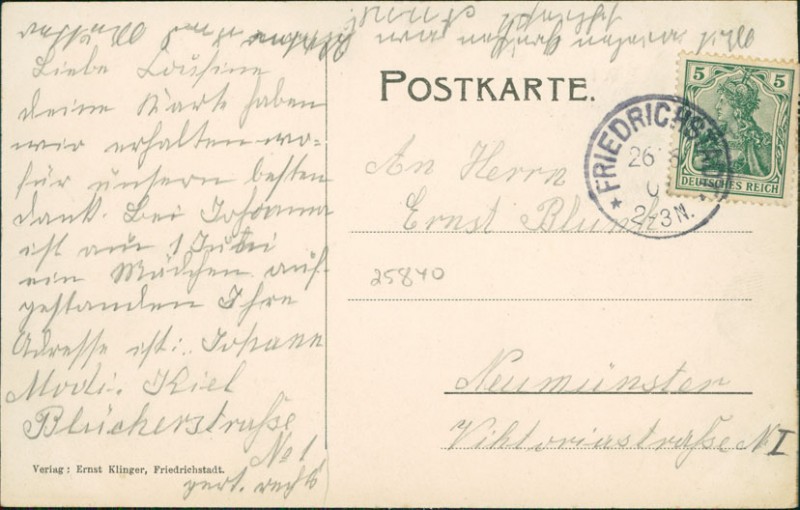 Liebe Cousine
deine Karte haben
wir erhalten wo=
für unsern besten
dank. Bei Johanna
ist am 1 Juli
ein Mädchen auf-
gestanden Ihre
Adresse ist: Johane
Kiel
Blücherstraße
No 1
part. rechts
Verlag: Ernst Klinger, Friedrichstadt.
POSTKARTE.
5 5
DEUTSCHES REICH
FRIEDRICHSTADT
26
2-3N.
An Herrn
Ernst
25840
Neumünster
Viktoriastraße N I